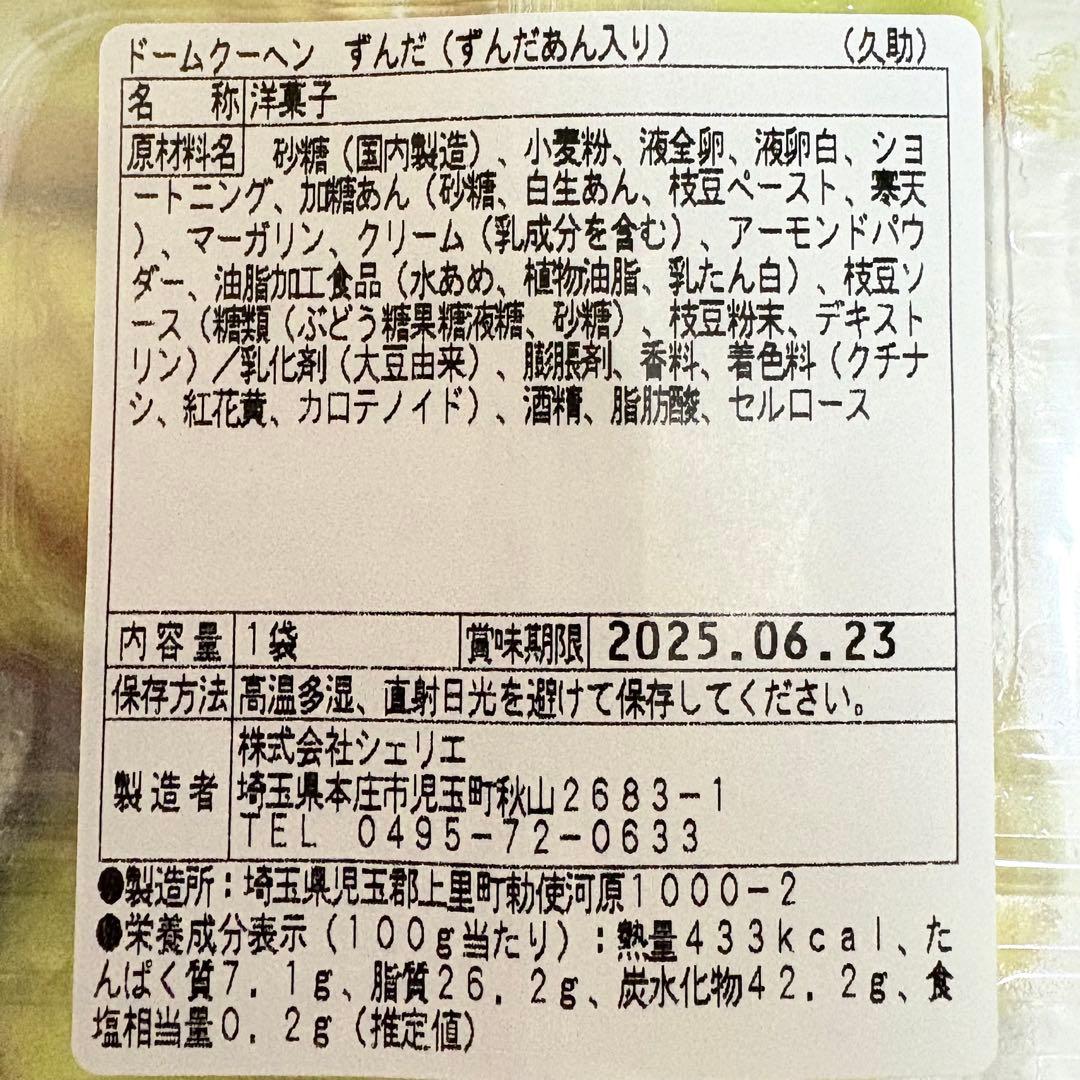 ドームクーヘン　ずんだ（ずんだあん入り）　（久助）
名　称 洋菓子
原材料名　砂糖（国内製造）、小麦粉、液全卵、液卵白、ショ
ートニング、加糖あん（砂糖、白生あん、枝豆ペースト、寒天
）、マーガリン、クリーム（乳成分を含む）、アーモンドパウ
ダー、油脂加工食品（水あめ、植物油脂、乳たん白）、枝豆ソ
ース（糖類（ぶどう糖果糖液糖、砂糖）、枝豆粉末、デキスト
リン）／乳化剤（大豆由来）、膨脹剤、香料、着色料（クチナ
シ、紅花黄、カロテノイド）、酒精、脂肪酸、セルロース
内容量 １袋 賞味期限 2025.06.23
保存方法 高温多湿、直射日光を避けて保存してください。
製造者 株式会社シェリエ
埼玉県本庄市児玉町秋山２６８３－１
ＴＥＬ　０４９５－７２－０６３３
●製造所：埼玉県児玉郡上里町勅使河原１０００－２
●栄養成分表示（１００ｇ当たり）：熱量４３３ｋｃａｌ、た
んぱく質７．１ｇ、脂質２６．２ｇ、炭水化物４２．２ｇ、食
塩相当量０．２ｇ（推定値）